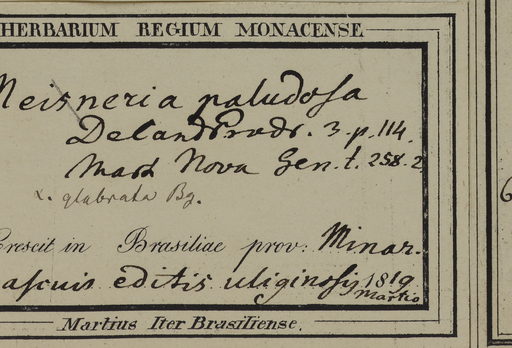 HERBARIUM REGIUM MONACENSE
Meisneria paludosa
DeCand Prodr. 3. p. 114.
Mart Nova Gen. t. 258. 2
α. glabrata Bg.
Crescit in Brasiliae prov: Minar.
pascuis editis uliginosis 1819
Martio
Martius Iter Brasiliense.
6